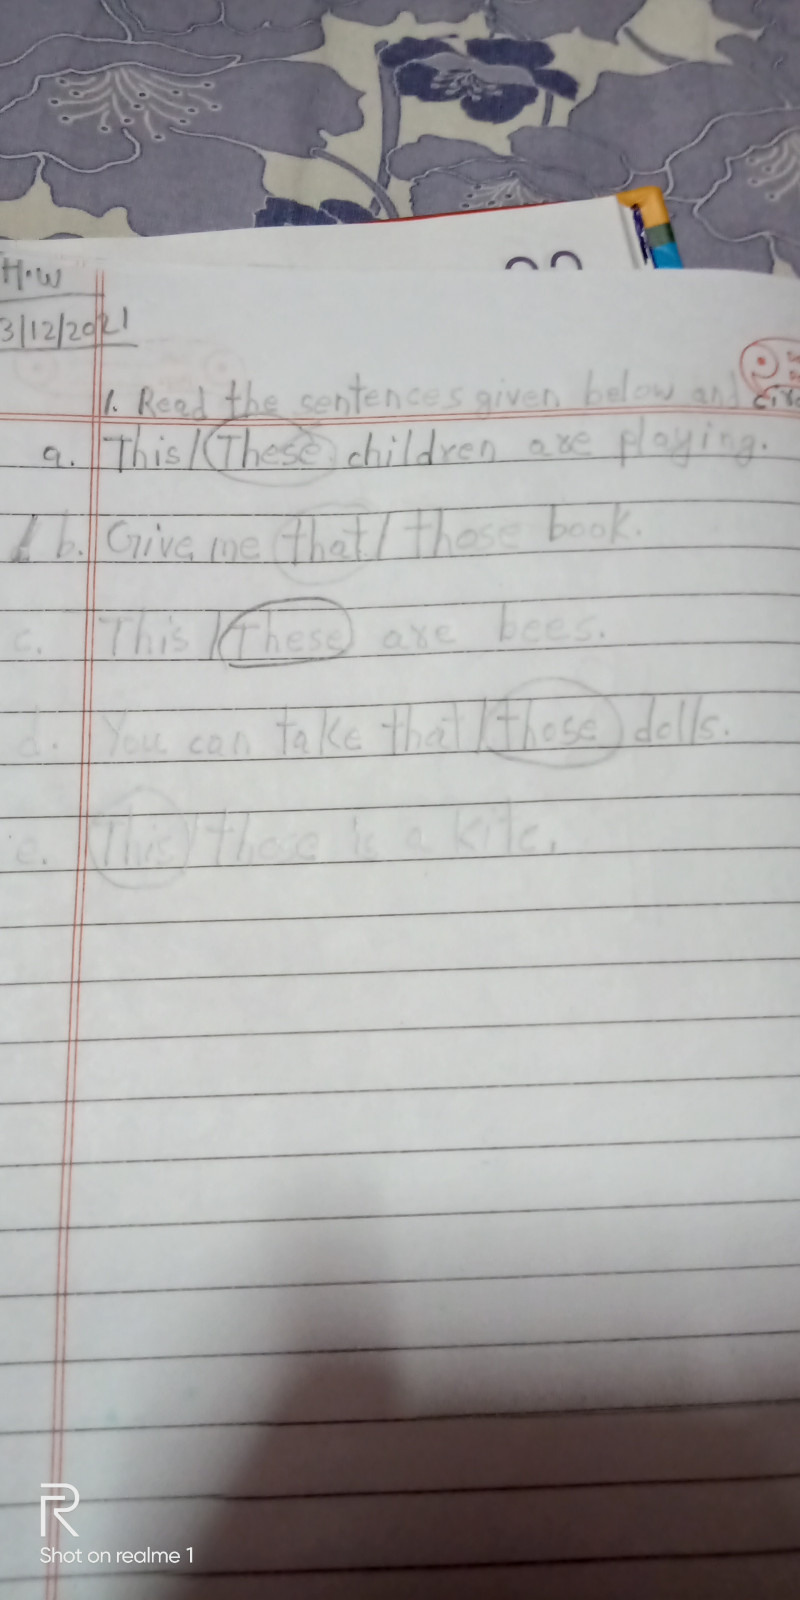 H.W
3/12/2021
1. Read the sentences given below and circ
a. This/These children are playing.
b. Give me that/those book.
c. This/These are bees.
d. You can take that/those dolls.
e. This/these is a kite.
Shot on realme 1